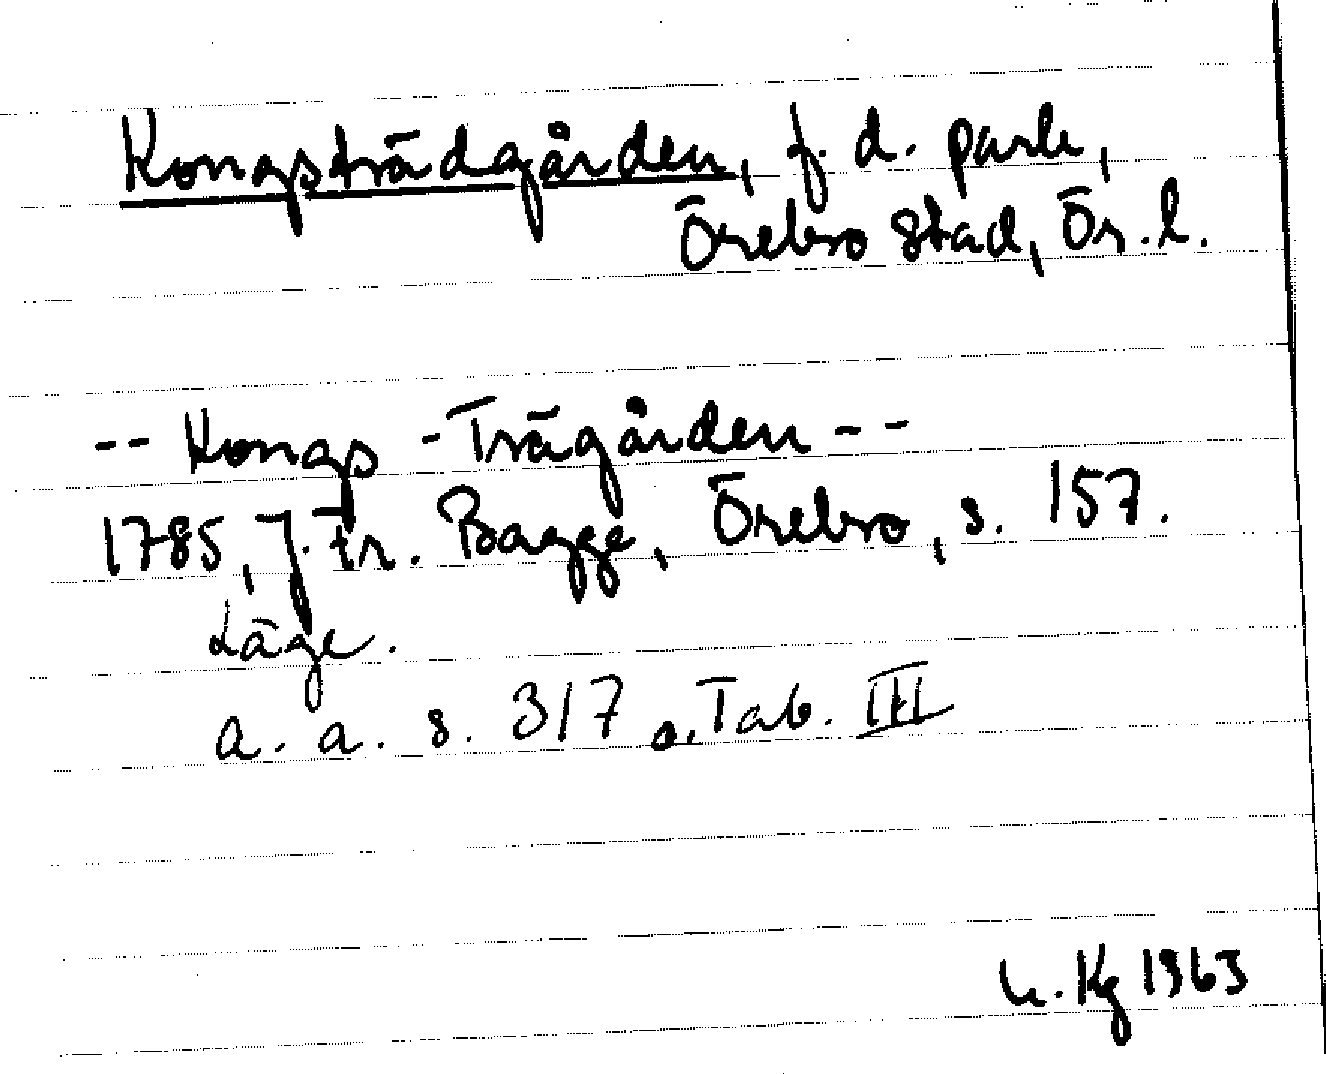 Kongsträdgården, f. d. park,
Örebro stad, Ör. l.
-- Kongs-Trägården --
1785, J. Fr. Bagge, Örebro, s. 157.
Läge.
a. a. s. 317 o. Tab. III
Kg 1963